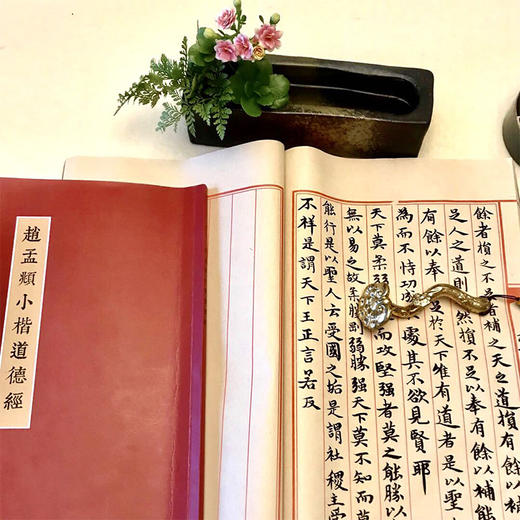 趙孟頫小楷道德經
餘者損之不足者補之天之道損有餘
足人之道則然損不足以奉有餘以補能
有餘以奉足於天下惟有道者是以聖
為而不恃功成處其不欲見賢耶
天下莫柔弱而攻堅强者莫之能勝以
無以易之故柔勝剛弱勝强天下莫不知而莫
能行是以聖人云受國之垢是謂社稷主受
不祥是謂天下王正言若反